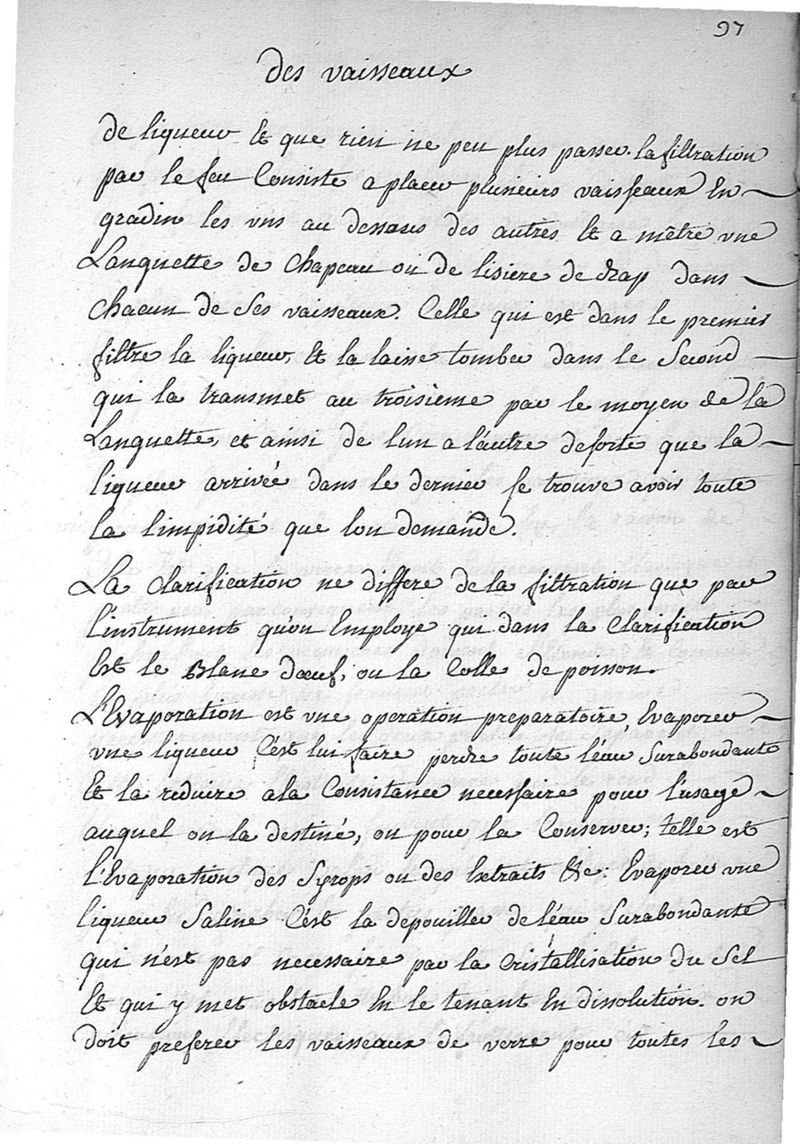 97
des vaisseaux
de liqueur Et que rien ne peu plus passer. la filtration
par le feu Consiste a placer plusieurs vaisseaux En
gradin les uns au dessous des autres Et a mêtre une
Languette de Chapeau ou de lisiere de drap dans
Chacun de Ses vaisseaux. Celle qui est dans le premier
filtre la liqueur, Et la laisse tomber dans le Second
qui la transmet au troisieme par le moyen de la
Languette, et ainsi de lun a láutre desorte que la
liqueur arrivée dans le dernier se trouve avoir toute
la limpidité que lon demande.
La Clarification ne differe de la filtration que par
l'instrument qu'on Employe qui dans la Clarification
Est le Blanc dœuf, ou la Colle de poisson.
L'Evaporation est une operation preparatoire Evaporer
une liqueur C'est lui faire perdre toute léau Surabondante
Et la reduire a la Consistance necessaire pour l'usage
auquel on la destiné, ou pour la Conserver; telle est
l'Evaporation des Syrops ou des Extraits &c: Evaporer une
liqueur Saline C'est la depouiller de léau Surabondante
qui n'est pas necessaire par la Cristallisation du Sel
Et qui y met obstacle En le tenant En dissolution. on
doit preferer les vaisseaux de verre pour toutes les